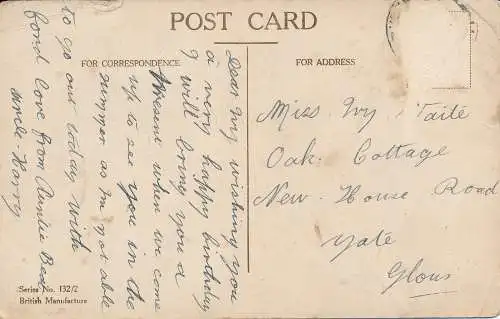 POST CARD
FOR CORRESPONDENCE
FOR ADDRESS
Dear Ivy wishing you
a very happy birthday
I will bring you a
present when we come
up to see you in the
summer as I'm not able
to go out today with
fond love from Auntie Bea
Uncle Harry
Miss Ivy Taite
Oak Cottage
New House Road
Yate
Glous
Series No. 132/2
British Manufacture